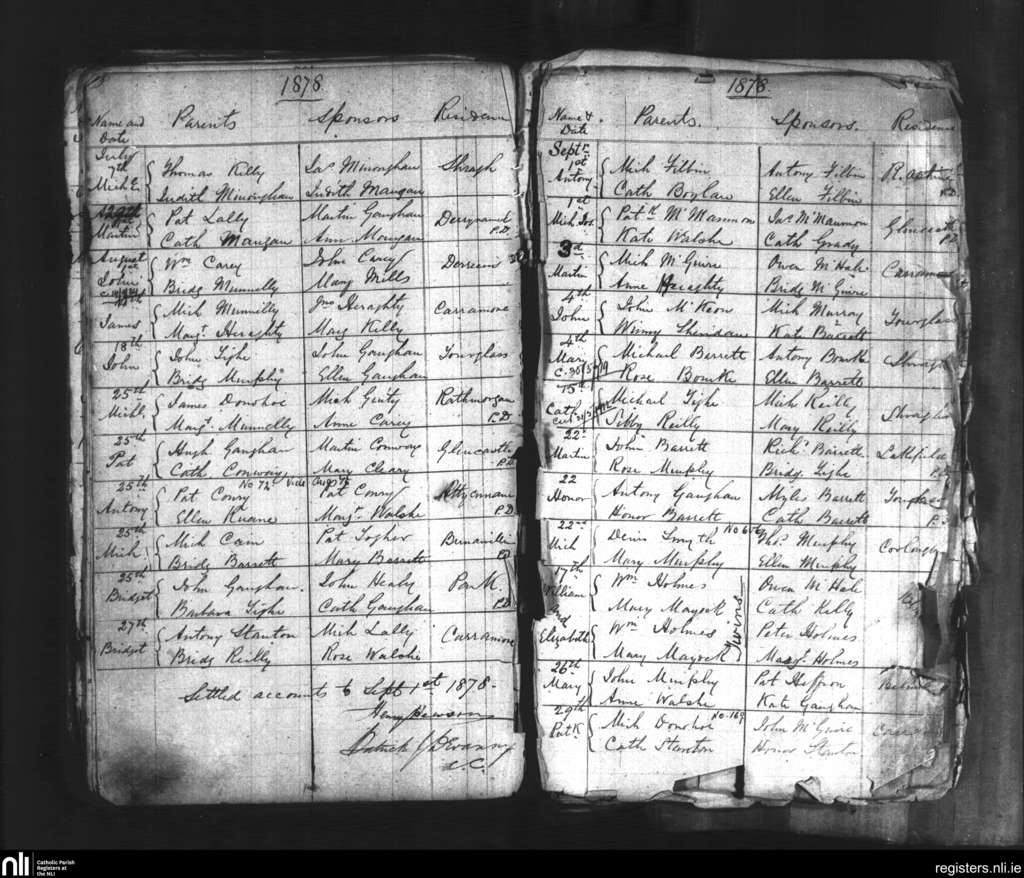 1878
Name and Date Parents Sponsors Residence
July
7th Thomas Kelly Jas Minoughan Shragh
Mich Judith Minoughan Judith Mangan
Pat Lally Martin Gaughan Derrynamed
Martin Cath Mangan Ann P.D.
August
1st Wm Carey John Carey Derreen
John Bridg Munnelly Mary Mills
Mich Munnelly Jno Heraghty Carramore
James Margt. Heraghty Mary Kelly
18th John Tighe John Gaughan Tourglass
John Bridg Murphy Ellen Gaughan
25th James Donohoe Mich Ginty Rathmorgan
Michl. Margt. Munnelly Anne Carey P.D.
25th Hugh Gaughan Martin Conway Glencastle
Pat Cath Conway Mary Cleary P.D.
No 72 Vide
25th Pat Conry Pat Conry
Antony Ellen Ruane Margt. Walshe P.D.
25th Mich Cain Pat Togher
Mich Bridg Barrett Mary Barrett P.D.
25th John Gaughan John Healy Park
Bridget Barbara Tighe Cath Gaughan P.D.
27th Antony Stanton Mich Lally Carramore
Bridget Bridg Reilly Rose Walshe
Settled accounts to Sept 1st 1878
Henry Hewson
Patrick
C.C.
1878
Name & Date Parents. Sponsors. Residence
Septr.
1st Mich Filbin Antony Filbin
Antony Cath Boylan Ellen Filbin P.D.
1st Patk Mc Manmon Jas Mc Manmon Glencastle
Mich Jos. Kate Walshe Cath Grady P.D.
3d Mich Mc Guire Owen Mc Hale Carramore
Martin Anne Heraghty Bridg Mc Guire
4th John Mc Keon Mich Murray Tourglass
John Winny Sheridan Kate Barrett
4th Michael Barrett Antony Bourke Shragh
Mary Rose Bourke Ellen Barrett
15th Michael Tighe Mich Reilly Shragh
Cath Sibby Reilly Mary Reilly
22d John Barrett Richd. Barrett
Martin Rose Murphy Bridg Tighe P.D.
22 Antony Gaughan Myles Barrett Tourglass
Honor Honor Barrett Cath Barrett P.D.
22d Denis Smyth Thos. Murphy
Mich Mary Murphy Ellen Murphy
17th Wm Holmes Owen Mc Hale
William Mary Mayock Cath Kelly
Twins
Wm Holmes Peter Holmes
Elizabeth Mary Mayock Margt. Holmes
26th John Murphy Pat Heffron
Mary Anne Walshe Kate Gaughan
29th Mich Donohoe No. 169 John Mc Guire
Patk Cath Stanton Honor Stanton
nli Catholic Parish
Registers at
the NLI
registers.nli.ie